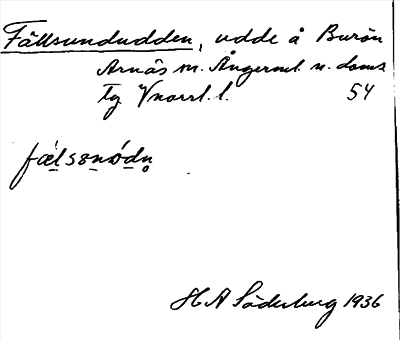 Fällsundudden, udde å Burön
Arnäs sn. Ångerml. n. doms.
tg Vnorrl. l. 54
fǽlsɵnǿdn̥
H A Söderberg 1936